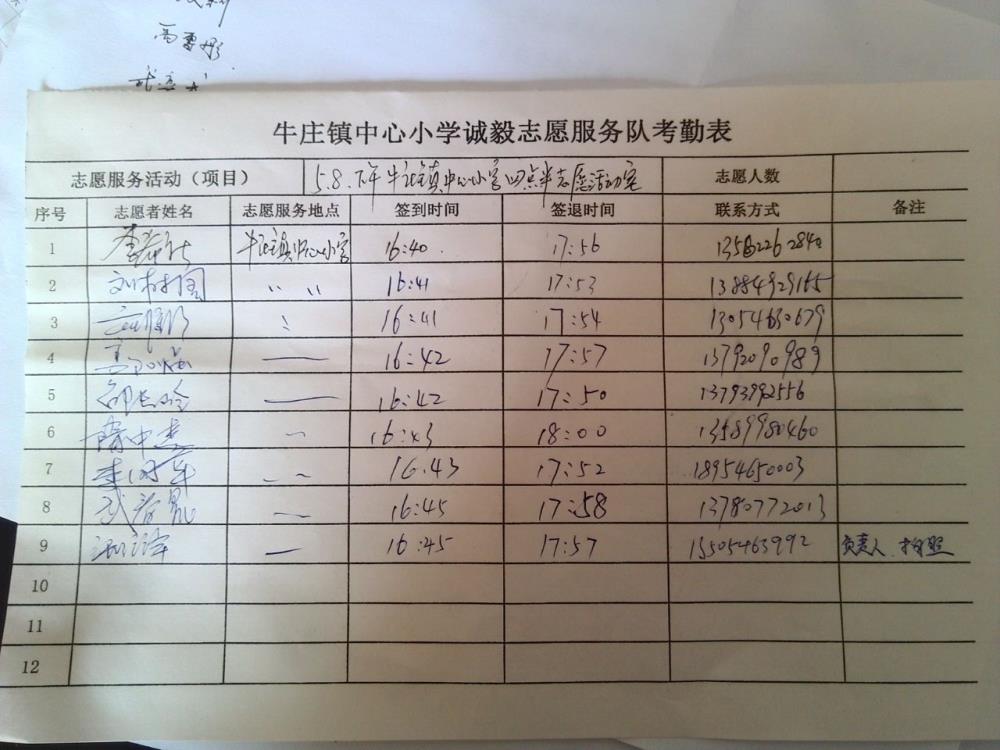 高
牛庄镇中心小学诚毅志愿服务队考勤表
志愿服务活动（项目） 5.8.下午牛庄镇中心小学四点半志愿活动室 志愿人数
序号 志愿者姓名 志愿服务地点 签到时间 签退时间 联系方式 备注
1 牛庄镇中心小学 16:40. 17:56
2 〃 〃 16:41 17:53 13884929165
3 16:41 17:54 13054630679
4 16:42 17:57 13792090989
5 16:42 17:50 13793992556
6 隋中 16:43 18:00 13589980460
7 李 16:43 17:52 18954650003
8 武 16:45 17:58 13780772013
9 16:45 17:57 13505463992 负责人、拍照
10
11
12